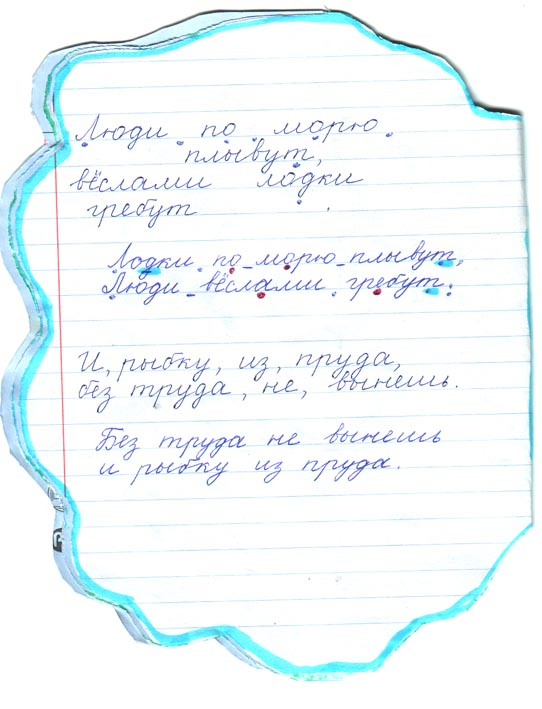 Люди по морю
плывут,
вёслами лодки
гребут
Лодки по морю плывут,
Люди вёслами гребут.
И, рыбку, из, пруда,
без труда, не, вынешь.
Без труда не вынешь
и рыбку из пруда.